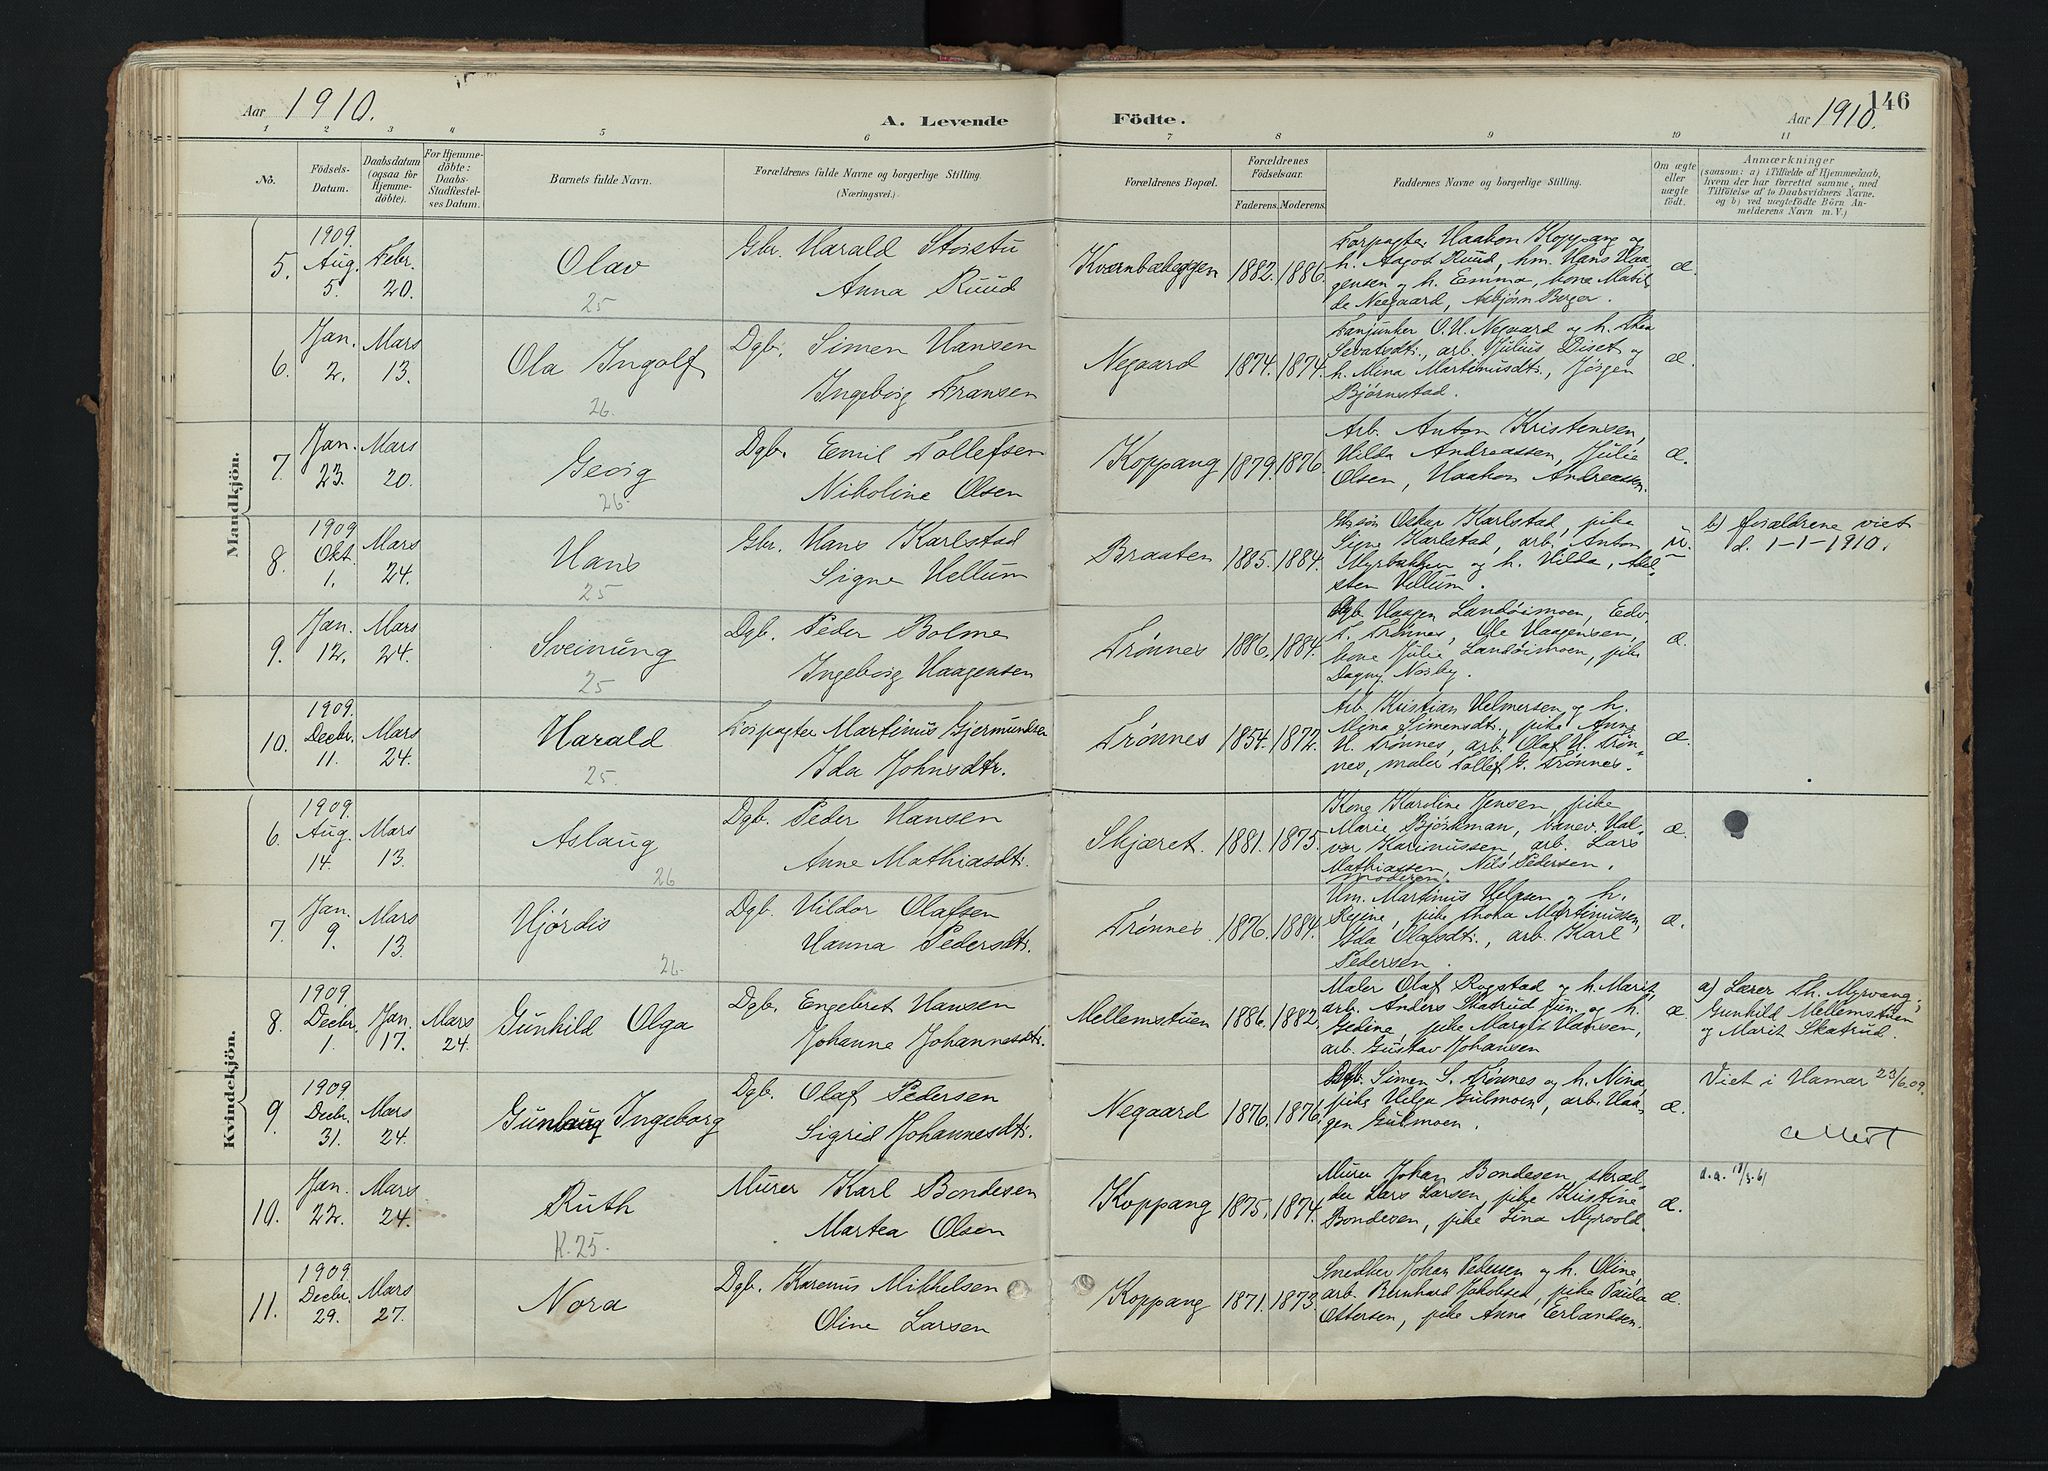 Aar 1910. A. Levende Födte. Aar 1910. 146
1 2 3 4 5 6 7 8 9 10 11
No. Födsels-Datum. Daabsdatum (ogsaa for Hjemmedöbte). For Hjemmedöbte: Daabs-Stadfæstelses Datum. Barnets fulde Navn. Forældrenes fulde Navne og borgerlige Stilling. (Næringsvei.) Forældrenes Bopæl. Forældrenes Födselsaar. Faderens. Moderens. Faddernes Navne og borgerlige Stilling. Om ægte eller uægte födt. Anmærkninger (saasom: a) i Tilfælde af Hjemmedaab, hvem der har forrettet samme, med Tilföielse af to Daabsvidners Navne, og b) ved uægtefödte Börn Anmelderens Navn m. V.)
Mandkjön.
5. 1909 Aug. 5. Febr. 20. Olav 25
Gbr. Harald Storstu
Anna Ruud
Kværnbæk 1882. 1886.
Forpagter Haakon Koppang og
h. Aagot Ruud, hm. Hans Haa
gensen og h. Emma, kone Matil
de Neegaard, Asbjørn Berger. æ
6. Jan. 2. Mars 13. Ola Ingolf 26.
Dgb. Simen Hansen
Ingeborg Fransen
Negaard 1874. 1874.
Fanjunker O. H. Negaard og h. Thea
Sevatsdtr., arb. Julius Diset og
h. Mina Martinusdtr., Jørgen
Bjørnstad. æ.
7. Jan. 23. Mars 20. Georg 26.
Dgb. Emil Tollefsen
Nikoline Olsen
Koppang 1879. 1876.
Arb. Anton Kristensen,
Hilda Andreassen, Julie
Olsen, Haakon Andreassen. æ.
8. 1909 Okt. 1. Mars 24. Hans 25
Gbr. Hans Karlstad
Signe Hellum
Braaten 1885. 1884.
Oskar Karlstad, pike
Signe Karlstad, arb. Anton
Myrbakken og h. Hilda,
Hellum. u.
b) forældrene viet
d. 1-1-1910.
9. Jan. 12. Mars 24. Sveinung 25
Dgb. Peder Bolme
Ingeborg Haagensen
Trønnes 1886. 1884.
Dgb. Haagen Landøimoen, Edv.
T. Trønnes, Ole Haagensen,
kone Julie Landøimoen, pike
Dagny Nosby. æ.
10. 1909. Decbr. 11. Mars 24. Harald 25
Forpagter Martinus Gjermundsen
Ida Johnsdtr.
Trønnes 1854. 1872.
Arb. Kristian Helmersen og h.
Mina Simensdtr., pike Anne
H. Trønnes, arb. Olaf H. Trøn-
nes, maler Tollef G. Trønnes. æ.
Kvindekjön.
6. 1909. Aug. 14. Mars 13. Aslaug 26
Dgb. Peder Hansen
Anne Mathiasdtr.
Skjæret 1881. 1875.
Kone Karoline Jensen, pike
Marie Bjørkman, Hal-
vor Karinussen, arb. Lars
Mathiassen, Nils Pedersen. æ.
moderen.
7. Jan 9. Mars 13. Hjørdis 26.
Dgb. Hildor Olafsen
Hanna Pedersdtr.
Trønnes 1876. 1884.
Hm. Martinus Helgesen og h.
Regine, pike Thora Martinussen,
Ida Olafsdtr., arb. Karl
Pedersen. æ.
8. 1909. Decbr. 1. Jan. 17. Mars 24. Gunhild Olga
Dgb. Engebret Hansen
Johanne Johannesdtr.
Mellemstuen 1886. 1882.
Maler Olaf Rogstad og h. Marit,
arb. Anders Skatrud jun. og h.
Gedine, pike Margit Hansen,
arb. Gustav Johansen æ
a) Lærer Th. Myrvang,
Gunhild Mellemstuen
og Marit Skatrud.
9. 1909 Decbr. 31. Mars 24. Gunlaug Ingeborg
Dgb. Olaf Pedersen
Sigrid Johannesdtr.
Negaard 1876. 1876.
Dgb. Simen S. Trønnes og h. Nina,
pike Helga Gulmoen, arb. Haa-
gen Gulmoen. æ.
Viet i Hamar 23/6.09.
10. Jan. 22. Mars 24. Ruth K. 25.
Murer Karl Bondesen
Martea Olsen
Koppang 1875. 1874.
Murer Johan Bondesen, skræd-
der Lars Larsen, pike Kristine
Bondesen, pike Lina Myrvold. æ.
d.a. 18/3.61
11. 1909 Decbr. 29. Mars 27. Nora
Dgb. Karenus Mikkelsen
Oline Larsen
Koppang 1871. 1873.
Snedker Johan Pedersen og h. Oline,
arb. Bernhard Jakobsen, pike Paula
Ottersen, pike Anna Erlandsen. æ.